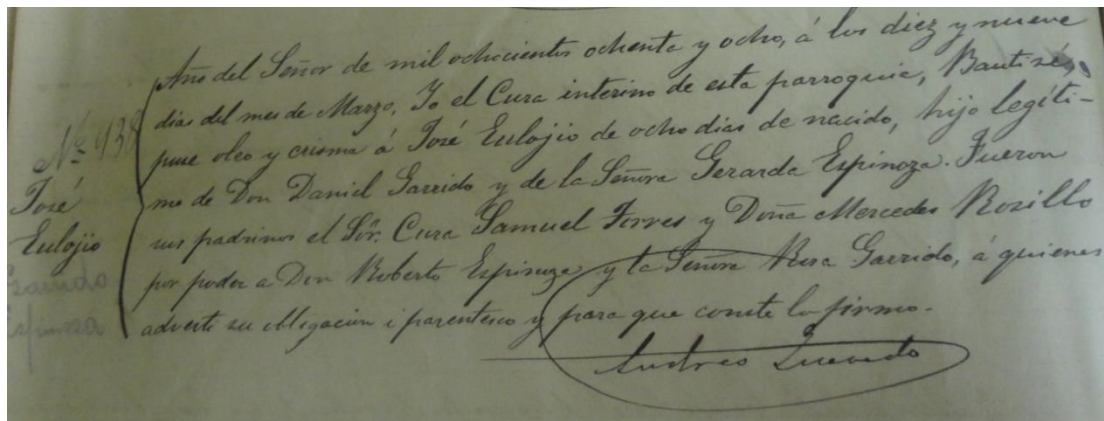 Año del Señor de mil ochocientos ochenta y ocho, á los diez y nueve
dias del mes de Marzo, Yo el Cura interino de esta parroquia, Bautisé,
puse oleo y crisma á José Eulojio de ocho dias de nacido, hijo legíti-
mo de Don Daniel Garrido y de la Señora Gerarda Espinoza. Fueron
sus padrinos el Sór. Cura Samuel Torres y Doña Mercedes Rosillo
por poder a Don Roberto Espinoza y la Señora Rosa Garrido, á quienes
advertí su obligacion i parentesco y para que conste lo firmo.
Andres Quevedo
Nº 938
José
Eulojio
Garrido
Espinoza